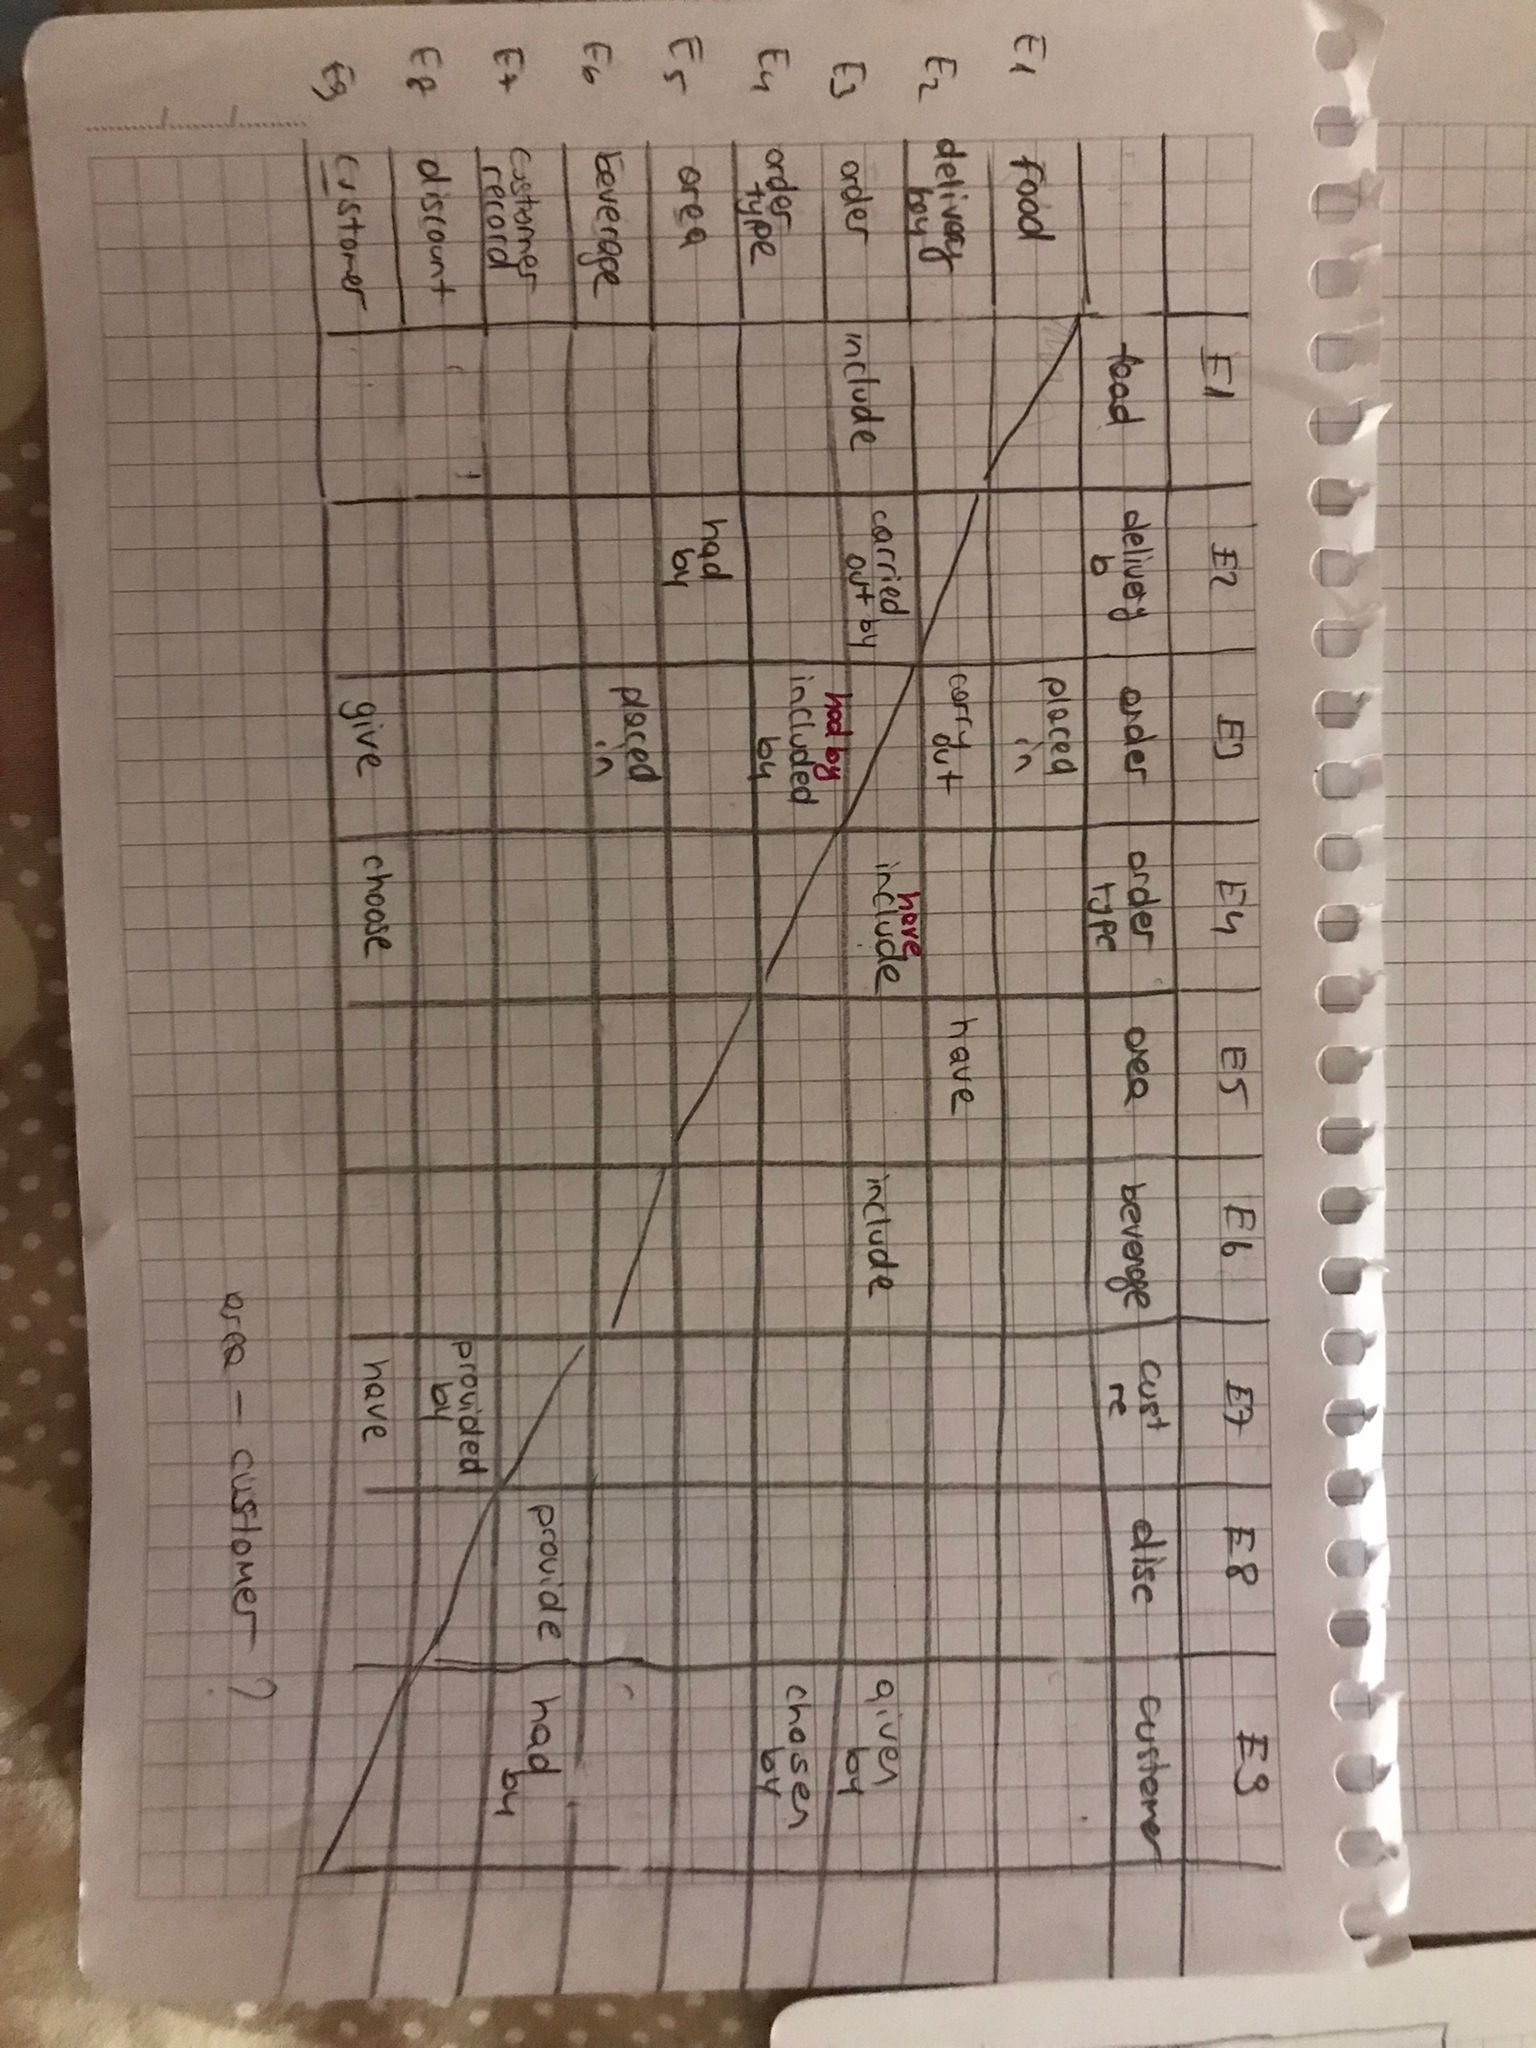 E1 E2 E3 E4 E5 E6 E7 E8 E9
food delivery b order order type area beverage cust re disc customer
E1 Food placed in
E2 delivery boy carry out have
E3 order include carried out by have include include given by
E4 order type had by included by chosen by
E5 area had by
E6 beverage placed in
E7 customer record provide had by
E8 discount provided by
E9 customer give choose have
area - customer ?